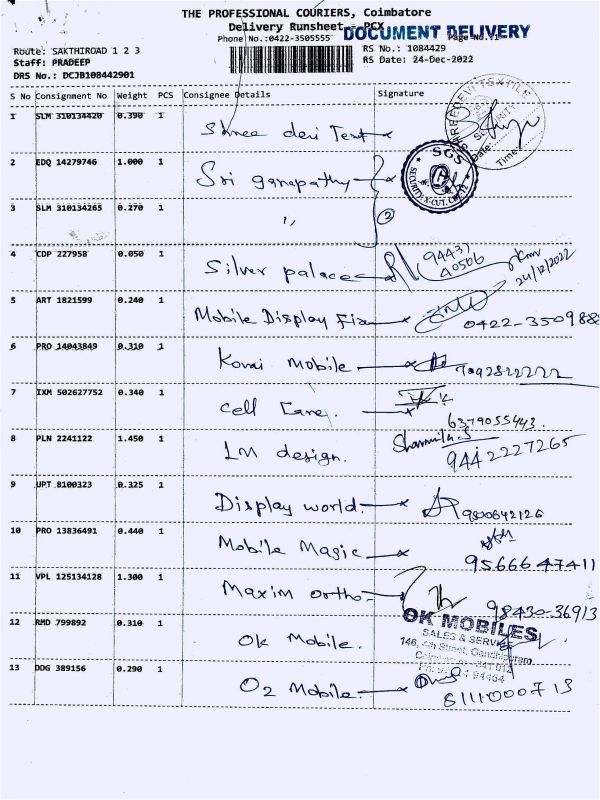 THE PROFESSIONAL COURIERS, Coimbatore
Delivery Runsheet - PCX
DOCUMENT DELIVERY
Phone No.:0422-3505555
Page No.:1
Route: SAKTHIROAD 1 2 3
RS No.: 1084429
Staff: PRADEEP
RS Date: 24-Dec-2022
DRS No.: DCJB108442901
S No Consignment No Weight PCS Consignee Details Signature
1 SLM 310134420 0.390 1 Shree devi Text
SHREEDEVI TEXTILE
SECURITY
Date:
Time:
2 EDQ 14279746 1.000 1 Sri ganapathy
SGS
SECURITY
3 SLM 310134265 0.270 1 ,, 2
4 CDP 227958 0.050 1 Silver palace 94437 40506 24/12/2022
5 ART 1821599 0.240 1 Mobile Display Fix 0422-3509888
6 PRO 14043849 0.310 1 Kovai Mobile
7 IXM 502627752 0.340 1 Cell Care. 6379055443.
8 PLN 2241122 1.450 1 IM design. Sharmila.S 9442227265
9 UPT 8100323 0.325 1 Display world. 9800642126
10 PRO 13836491 0.440 1 Mobile Magic 9566647411
11 VPL 125134128 1.300 1 Maxim ortho 98430-36913
12 RMD 799892 0.310 1 Ok Mobile.
OK MOBILES
SALES & SERVICE
146, 4th Street, Gandhipuram
13 DDG 389156 0.290 1 O2 Mobile.